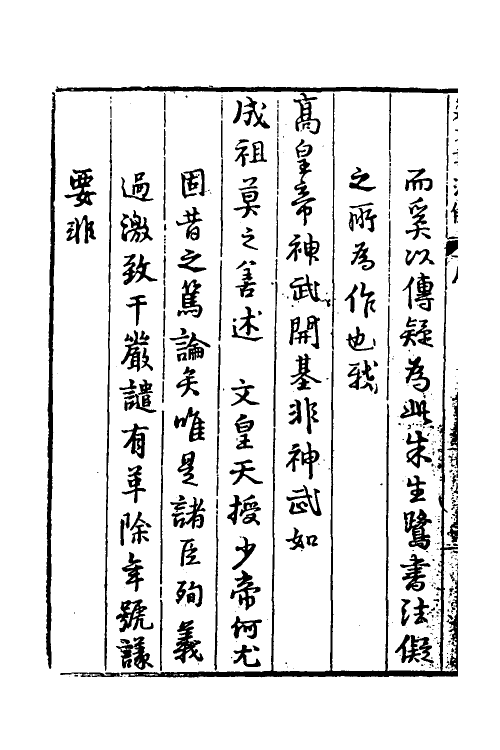 而奚以傳疑為此朱生鷺書法儗
之所為作也戟
髙皇帝神武開基非神武如
成祖莫之善述　文皇天授少帝何尤
固昔之篤論矣唯是諸臣殉義
過激致干嚴譴有革除年號議
要非